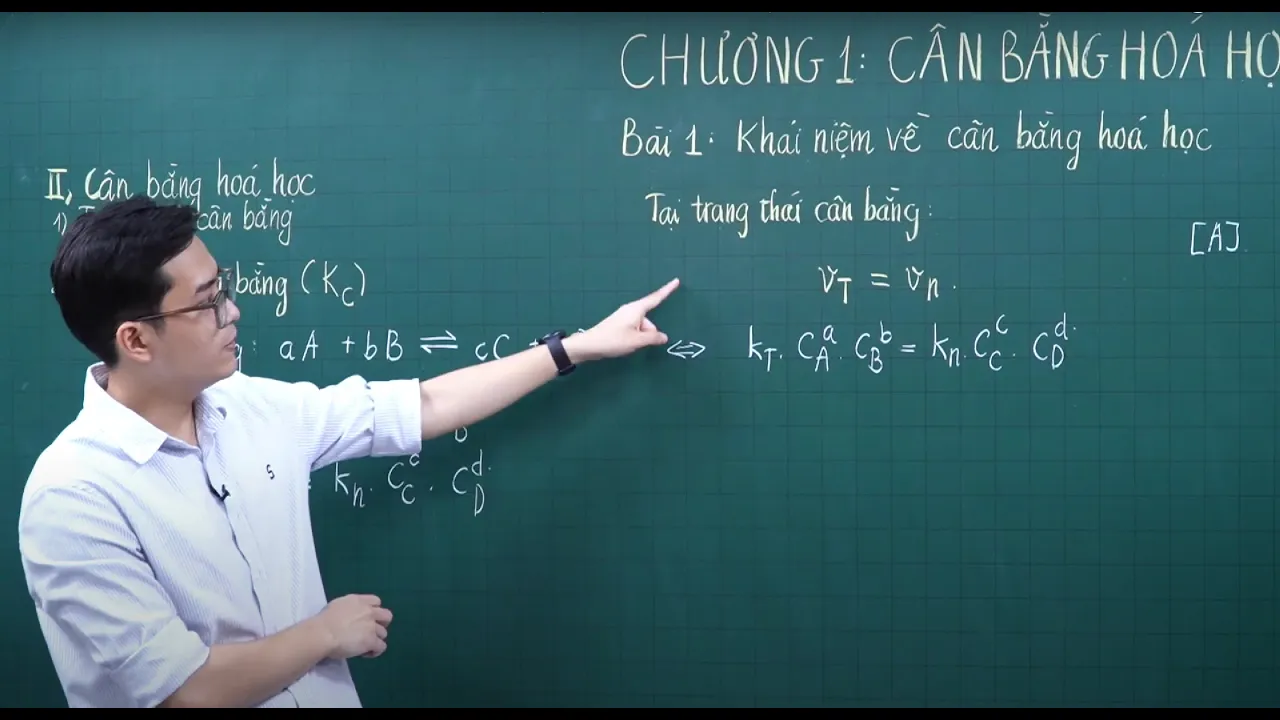 CHƯƠNG 1: CÂN BẰNG HOÁ HỌ
Bài 1: Khái niệm về cân bằng hoá học
II, Cân bằng hoá học
1) cân bằng
bằng (K_C)
: aA + bB ⇌ cC +
k_n. C_C^c . C_D^d.
Tại trạng thái cân bằng:
v_T = v_n.
⇔ k_T. C_A^a. C_B^b = k_n. C_C^c. C_D^d.
[A]